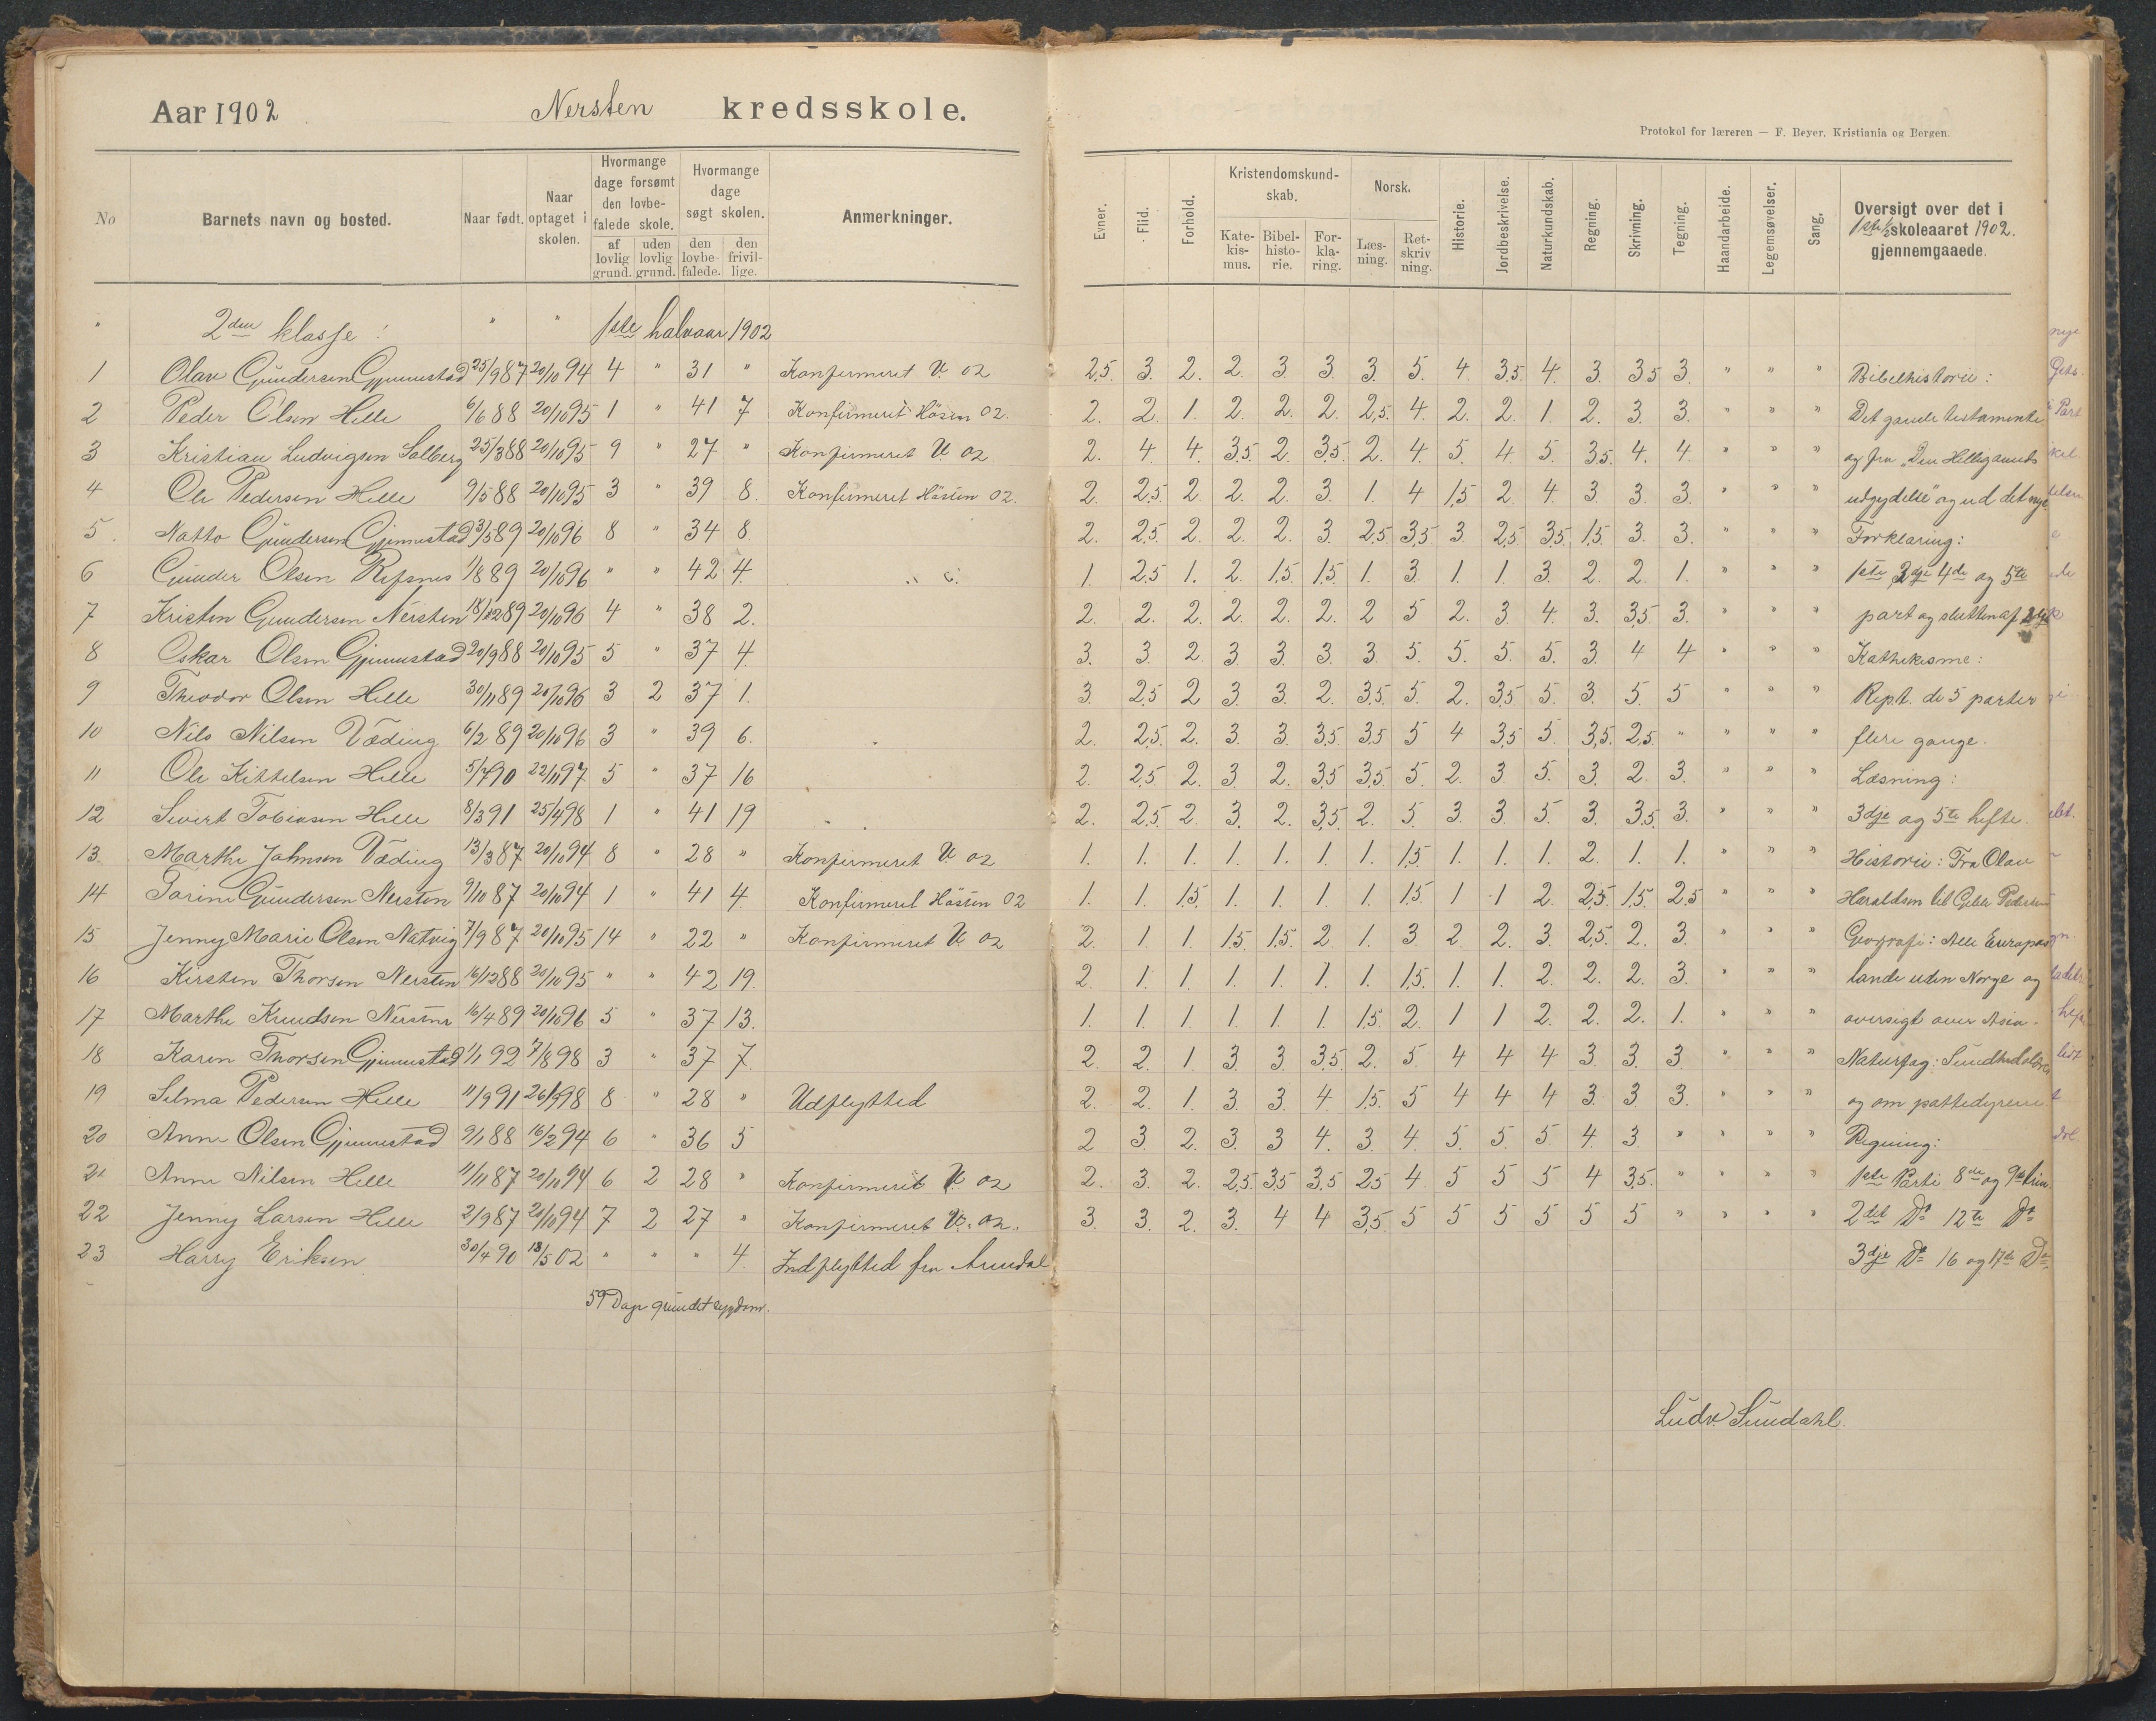 Aar 1902 Nersten kredsskole.
Protokol for læreren — F. Beyer, Kristiania og Bergen.
No Barnets navn og bosted. Naar født. Naar optaget i skolen. Hvormange dage forsømt den lovbefalede skole. af lovlig grund. uden lovlig grund. Hvormange dage søgt skolen. den lovbefalede. den frivillige. Anmerkninger.
Evner. Flid. Forhold. Kristendomskundskab. Katekismus. Bibelhistorie. Forklaring. Norsk. Læsning. Retskrivning. Historie. Jordbeskrivelse. Naturkundskab. Regning. Skrivning. Tegning. Haandarbeide. Legemsøvelser. Sang. Oversigt over det i 1ste ½ skoleaaret 1902. gjennemgaaede.
" 2den klasse: " " 1ste halvaar 1902
1 Olav Gundersen Gjennestad 25/9 87 20/10 94 4 " 31 " Konfirmeret V. 02 2,5. 3. 2. 2. 3. 3. 3. 5. 4. 3,5. 4. 3. 3,5 3. " " " Bibelhistorie:
2 Peder Olsen Helle 6/6 88 20/10 95 1 " 41 7 Konfirmeret Hösten 02. 2. 2. 1. 2. 2. 2. 2,5. 4. 2. 2. 1. 2. 3. 3. " " " Det gamle testamente
3 Kristian Ludvigsen Solberg 25/3 88 20/10 95 9 " 27 " Konfirmeret V. 02 2. 4. 4. 3,5. 2. 3,5. 2. 4. 5. 4. 5. 3,5. 4. 4. " " " og fra "Den Helligaands
4 Ole Pedersen Helle 9/5 88 20/10 95 3 " 39 8. Konfirmeret Hösten 02. 2. 2,5. 2. 2. 2. 3. 1. 4 1,5 2. 4 3 3. 3. " " " udgydelse" og ud det nye
5. Natto Gundersen Gjennestad 3/5 89 20/10 96 8 " 34 8. 2. 2,5. 2. 2. 2. 3. 2,5. 3,5. 3. 2,5. 3,5. 1,5. 3. 3. " " " Forklaring:
6 Gunder Olsen Refsnes 1/8 89 20/10 96 " " 42 4. 1. 2,5 1. 2. 1,5. 1,5. 1. 3. 1. 1. 3. 2. 2. 1. " " " 1ste 3dje 4de og 5te
7 Kristen Gundersen Nersten 18/12 89 20/10 96 4 " 38 2. 2. 2. 2. 2. 2. 2. 2 5 2. 3. 4. 3. 3,5. 3. " " " part og slutten af 2den
8 Oskar Olsen Gjennestad 20/9 88 20/10 95 5 " 37 4. 3. 3. 2. 3. 3. 3. 3. 5. 5. 5. 5. 3. 4 4 " " " Kathekisme:
9 Theodor Olsen Helle 30/11 89 20/10 96 3 2 37 1. 3. 2,5 2 3. 3. 2. 3,5. 5. 2. 3,5. 5. 3. 5. 5 " " " Rept. de 5 parter
10 Nils Nilsen Væding 6/2 89 20/10 96 3 " 39 6. 2. 2,5. 2. 3. 3. 3,5. 3,5 5 4 3,5 5. 3,5. 2,5. " " " " flere gange.
11 Ole Kittelsen Helle 5/7 90 22/11 97 5 " 37 16 2. 2,5. 2. 3. 2. 3,5 3,5. 5. 2. 3. 5. 3. 2. 3. " " " Læsning:
12 Sivert Tobiasen Helle 8/3 91 25/4 98 1 " 41 19 2. 2,5. 2. 3. 2. 3,5. 2. 5. 3. 3. 5. 3. 3,5. 3. " " " 3dje og 5te hefte.
13. Marthe Johnsen Væding 13/3 87 20/10 94 8 " 28 " Konfirmeret V. 02 1. 1. 1. 1. 1. 1. 1. 1,5. 1. 1. 1. 2. 1. 1. " " " Historie: Fra Olav
14 Tarine Gundersen Nersten 9/10 87 20/10 94 1 " 41 4 Konfirmeret Hösten 02 1. 1. 1,5. 1. 1. 1. 1. 1,5. 1 1 2. 2,5. 1,5. 2,5 " " " Haraldsen til Geble Pedersen
15 Jenny Marie Olsen Natvig 7/9 87 20/10 95 14 " 22 " Konfirmeret V. 02 2. 1. 1. 1,5. 1,5. 2. 1. 3 2 2. 3. 2,5. 2. 3. " " " Geografi: Alle Europas
16 Kirsten Thorsen Nersten 16/12 88 20/10 95 " " 42 19. 2. 1. 1. 1. 1. 1. 1. 1,5. 1. 1. 2. 2. 2. 3. " " " lande uden Norge og
17 Marthe Knudsen Nersten 16/4 89 20/10 96 5 " 37 13. 1. 1. 1. 1. 1. 1. 1,5. 2. 1 1 2. 2. 2. 1. " " " oversigt over Asia.
18 Karen Thorsen Gjennestad 1/1 92 7/8 98 3 " 37 7. 2. 2. 1 3. 3. 3,5. 2. 5 4 4 4 3. 3. 3 " " " Naturfag: Sundhedslære
19 Selma Pedersen Helle 11/9 91 26/9 98 8 " 28 " Udflytted 2. 2. 1. 3. 3. 4. 1,5. 5 4 4 4 3. 3 3. " " " og om pattedyrene
20 Anne Olsen Gjennestad 9/1 88 16/2 94 6 " 36 5 2 3. 2. 3. 3 4. 3. 4. 5. 5. 5. 4. 3. " " " " Regning:
21 Anne Nilsen Helle 11/11 87 20/10 94 6 2 28 " Konfirmeret V. 02 2. 3. 2. 2,5. 3,5 3,5 2,5 4 5 5 5 4 3,5. " " " " 1ste Parti 8de og 9de trin
22 Jenny Larsen Helle 2/9 87 20/10 94 7 2 27 " Konfirmeret V. 02. 3. 3. 2. 3. 4 4 3,5. 5 5 5 5 5 5 " " " " 2det Do 12te Do
23 Harry Eriksen 30/4 90 13/5 02 " " " 4. Indflytted fra Arendal 3dje Do 16 og 17de Do.
59 Dage grundet sygdom.
Ludv. Sundahl.